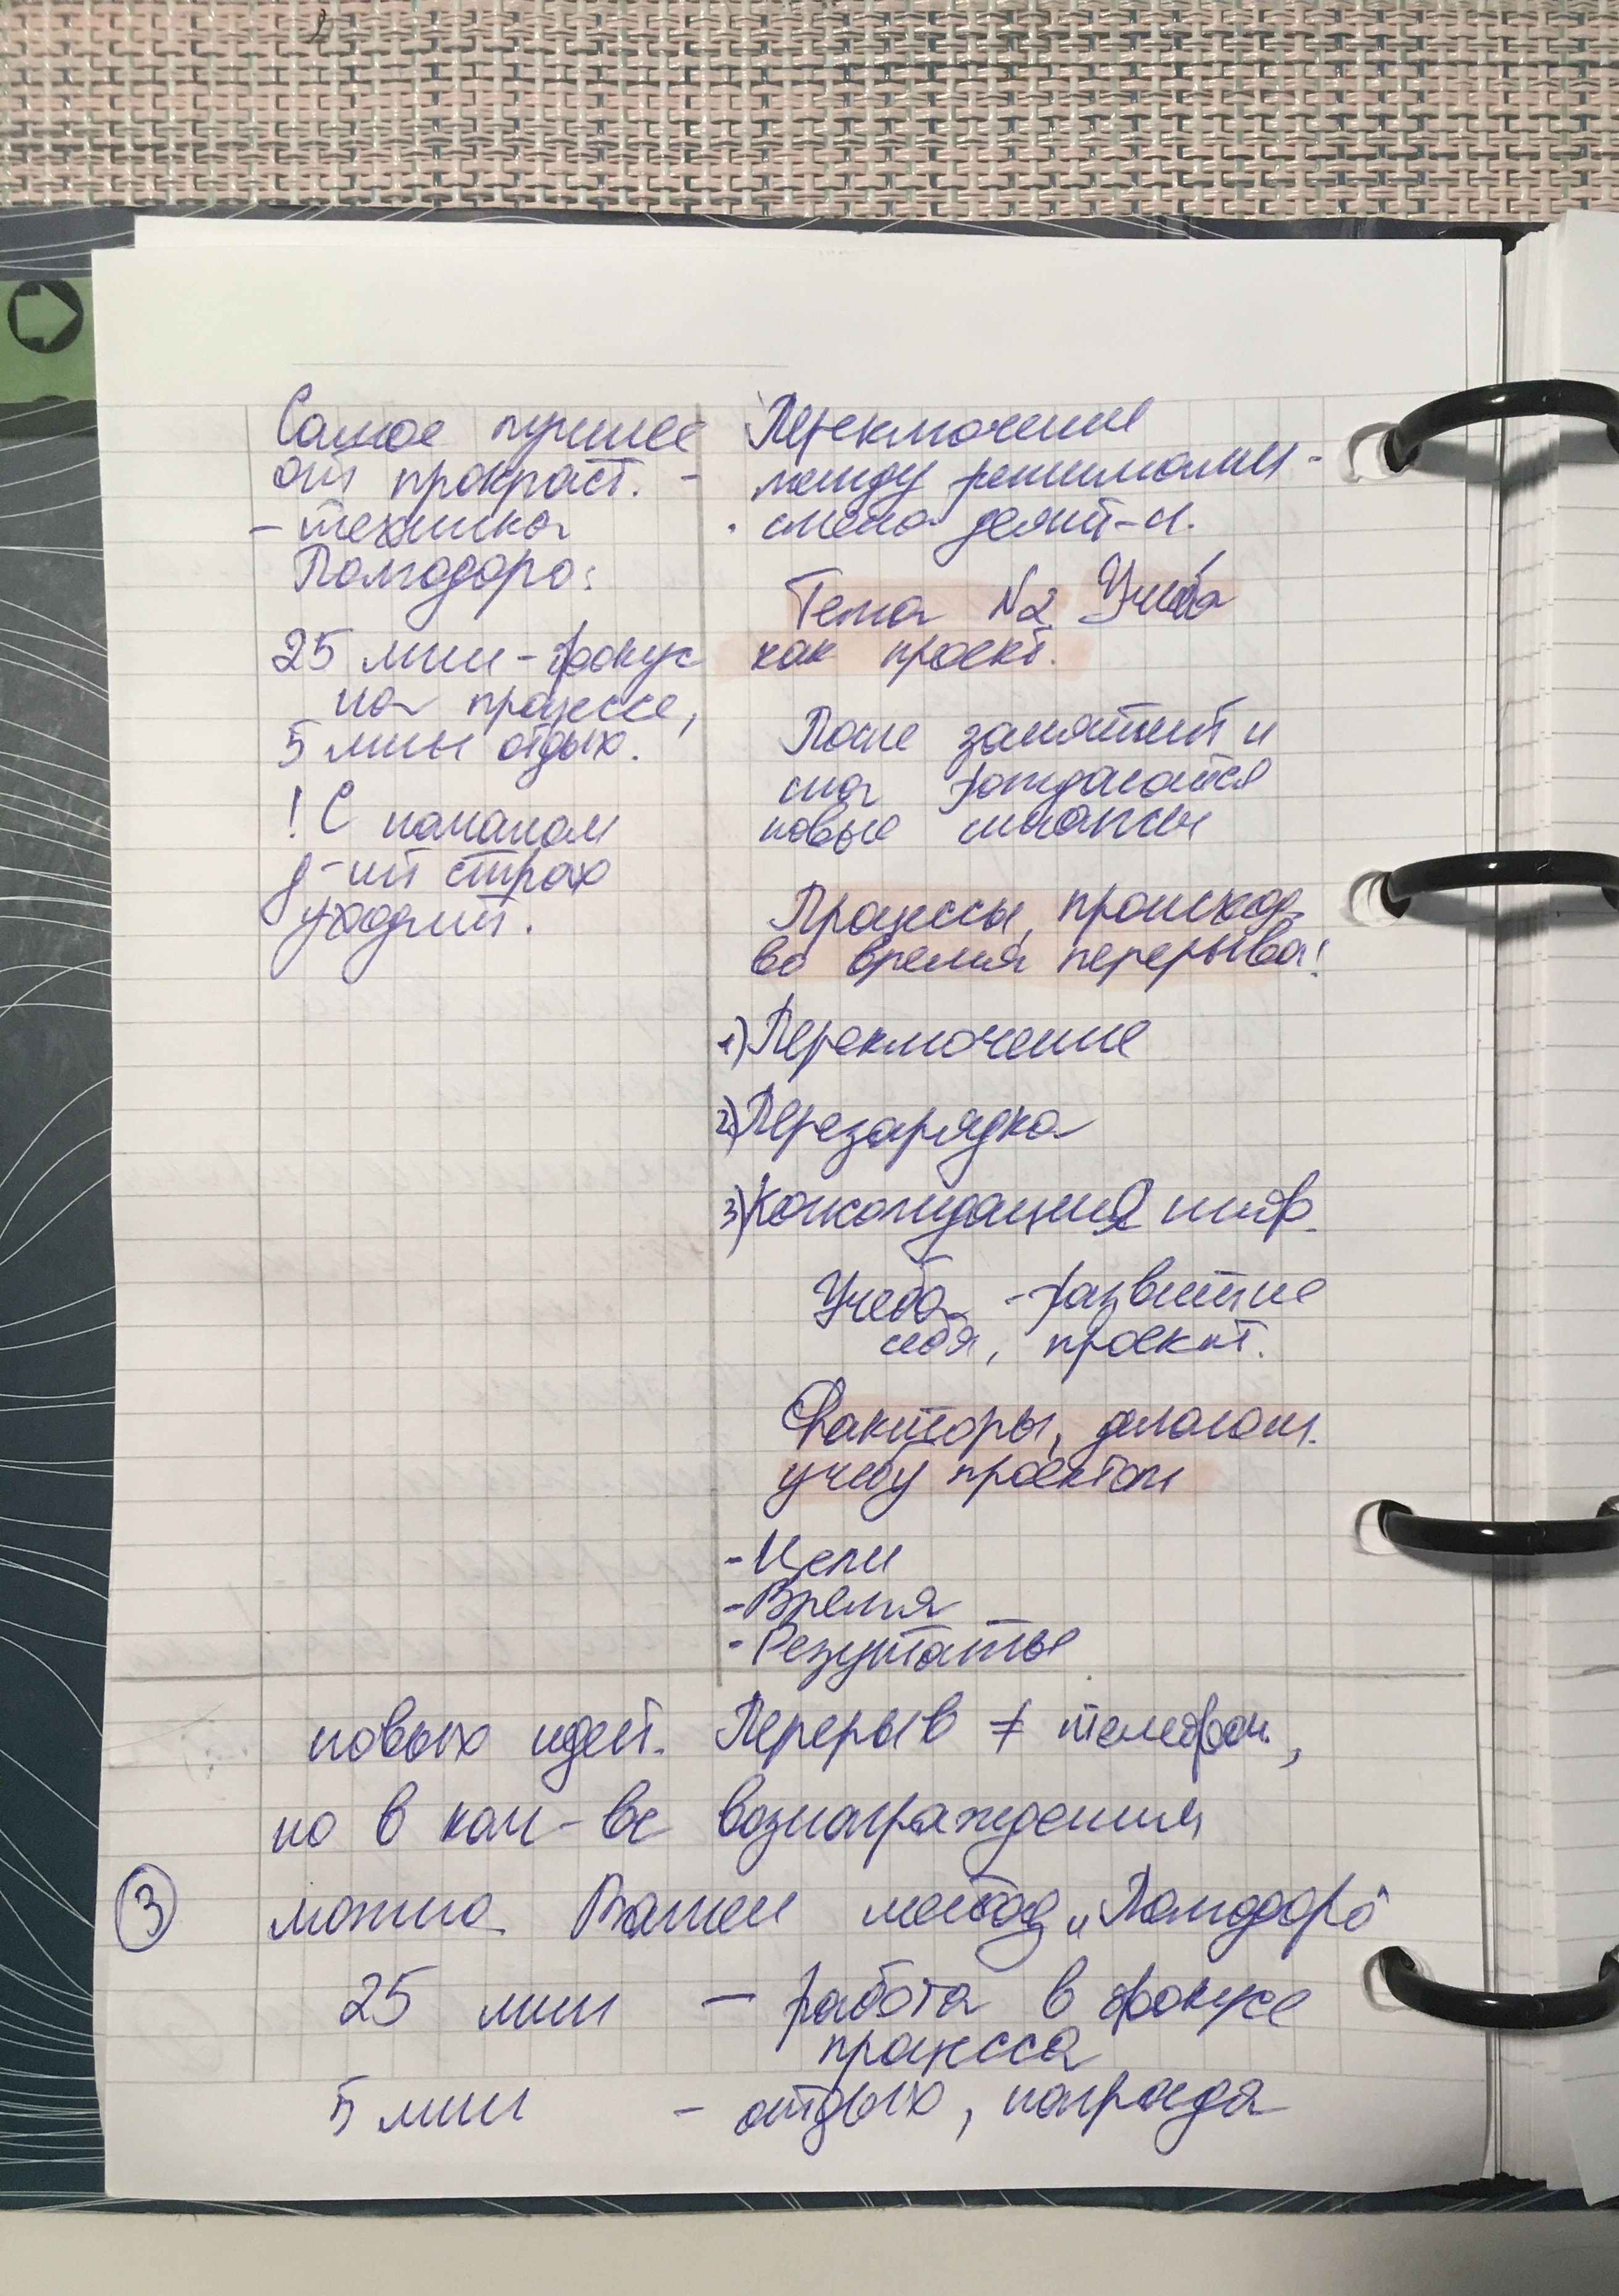 Самое лучшее
от прокраст. -
- техника
Помодоро:
25 мин - фокус
на процессе,
5 мин отдых.
! С началом
д-ий страх
уходит.
Переключение
между режимами -
смена деят-и.
Тема №2 Учеба
как проект.
После занятий и
сна рождаются
новые
Процессы, происход.
во время перерыва!
1) Переключение
2) Перезарядка
3) Консолидация инф.
Учеба - развитие
себя, проект.
Факторы, делающ.
учебу проектом
- Цели
- Время
- Резултаты
новых идей. Перерыв ≠ телефон,
но в кач-ве вознаграждения
3
можно. Важен метод „Помодоро"
25 мин - работа в фокусе
процесса
5 мин - отдых, награда